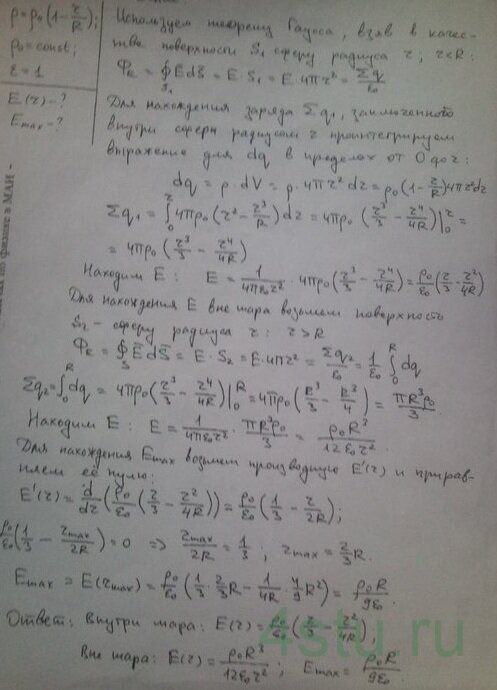 ρ=ρ₀(1-r/R);
ρ₀=const;
ε=1
E(r)-?
Emax-?
Используем теорему Гаусса, взяв в качес-
тве поверхности S₁ сферу радиуса r, r<R:
Ф_E = ∮_S₁ E⃗dS⃗ = E·S₁ = E·4πr² = Σq/ε₀
Для нахождения заряда Σq₁, заключенного
внутри сферы радиусом r проинтегрируем
выражение для dq в пределах от 0 до r:
dq = ρ·dV = ρ·4πr²dr = ρ₀(1-r/R)4πr²dr
Σq₁ = ∫₀^r 4πρ₀(r²-r³/R)dr = 4πρ₀(r³/3 - r⁴/4R)|₀^r =
= 4πρ₀(r³/3 - r⁴/4R)
Находим E: E = 1/4πε₀r² · 4πρ₀(r³/3 - r⁴/4R) = ρ₀/ε₀(r/3 - r²/4R)
Для нахождения E вне шара возьмем поверхность
S₂ - сферу радиуса r: r>R
Ф_E = ∮_S E⃗dS⃗ = E·S₂ = E·4πr² = Σq₂/ε₀ = 1/ε₀ ∫₀^R dq
Σq₂ = ∫₀^R dq = 4πρ₀(r³/3 - r⁴/4R)|₀^R = 4πρ₀(R³/3 - R³/4) = πR³ρ₀/3.
Находим E: E = 1/4πε₀r² · πR³ρ₀/3 = ρ₀R³/12ε₀r².
Для нахождения Emax возьмем производную E'(r) и прирав-
няем её нулю:
E'(r) = d/dr(ρ₀/ε₀(r/3 - r²/4R)) = ρ₀/ε₀(1/3 - r/2R);
ρ₀/ε₀(1/3 - rmax/2R) = 0 => rmax/2R = 1/3; rmax = 2/3R.
Emax = E(rmax) = ρ₀/ε₀(1/3·2/3R - 1/4R·4/9R²) = ρ₀R/9ε₀.
Ответ: Внутри шара: E(r) = ρ₀/ε₀(r/3 - r²/4R);
Вне шара: E(r) = ρ₀R³/12ε₀r²; Emax = ρ₀R/9ε₀.
4stu.ru
по физике в МАИ -